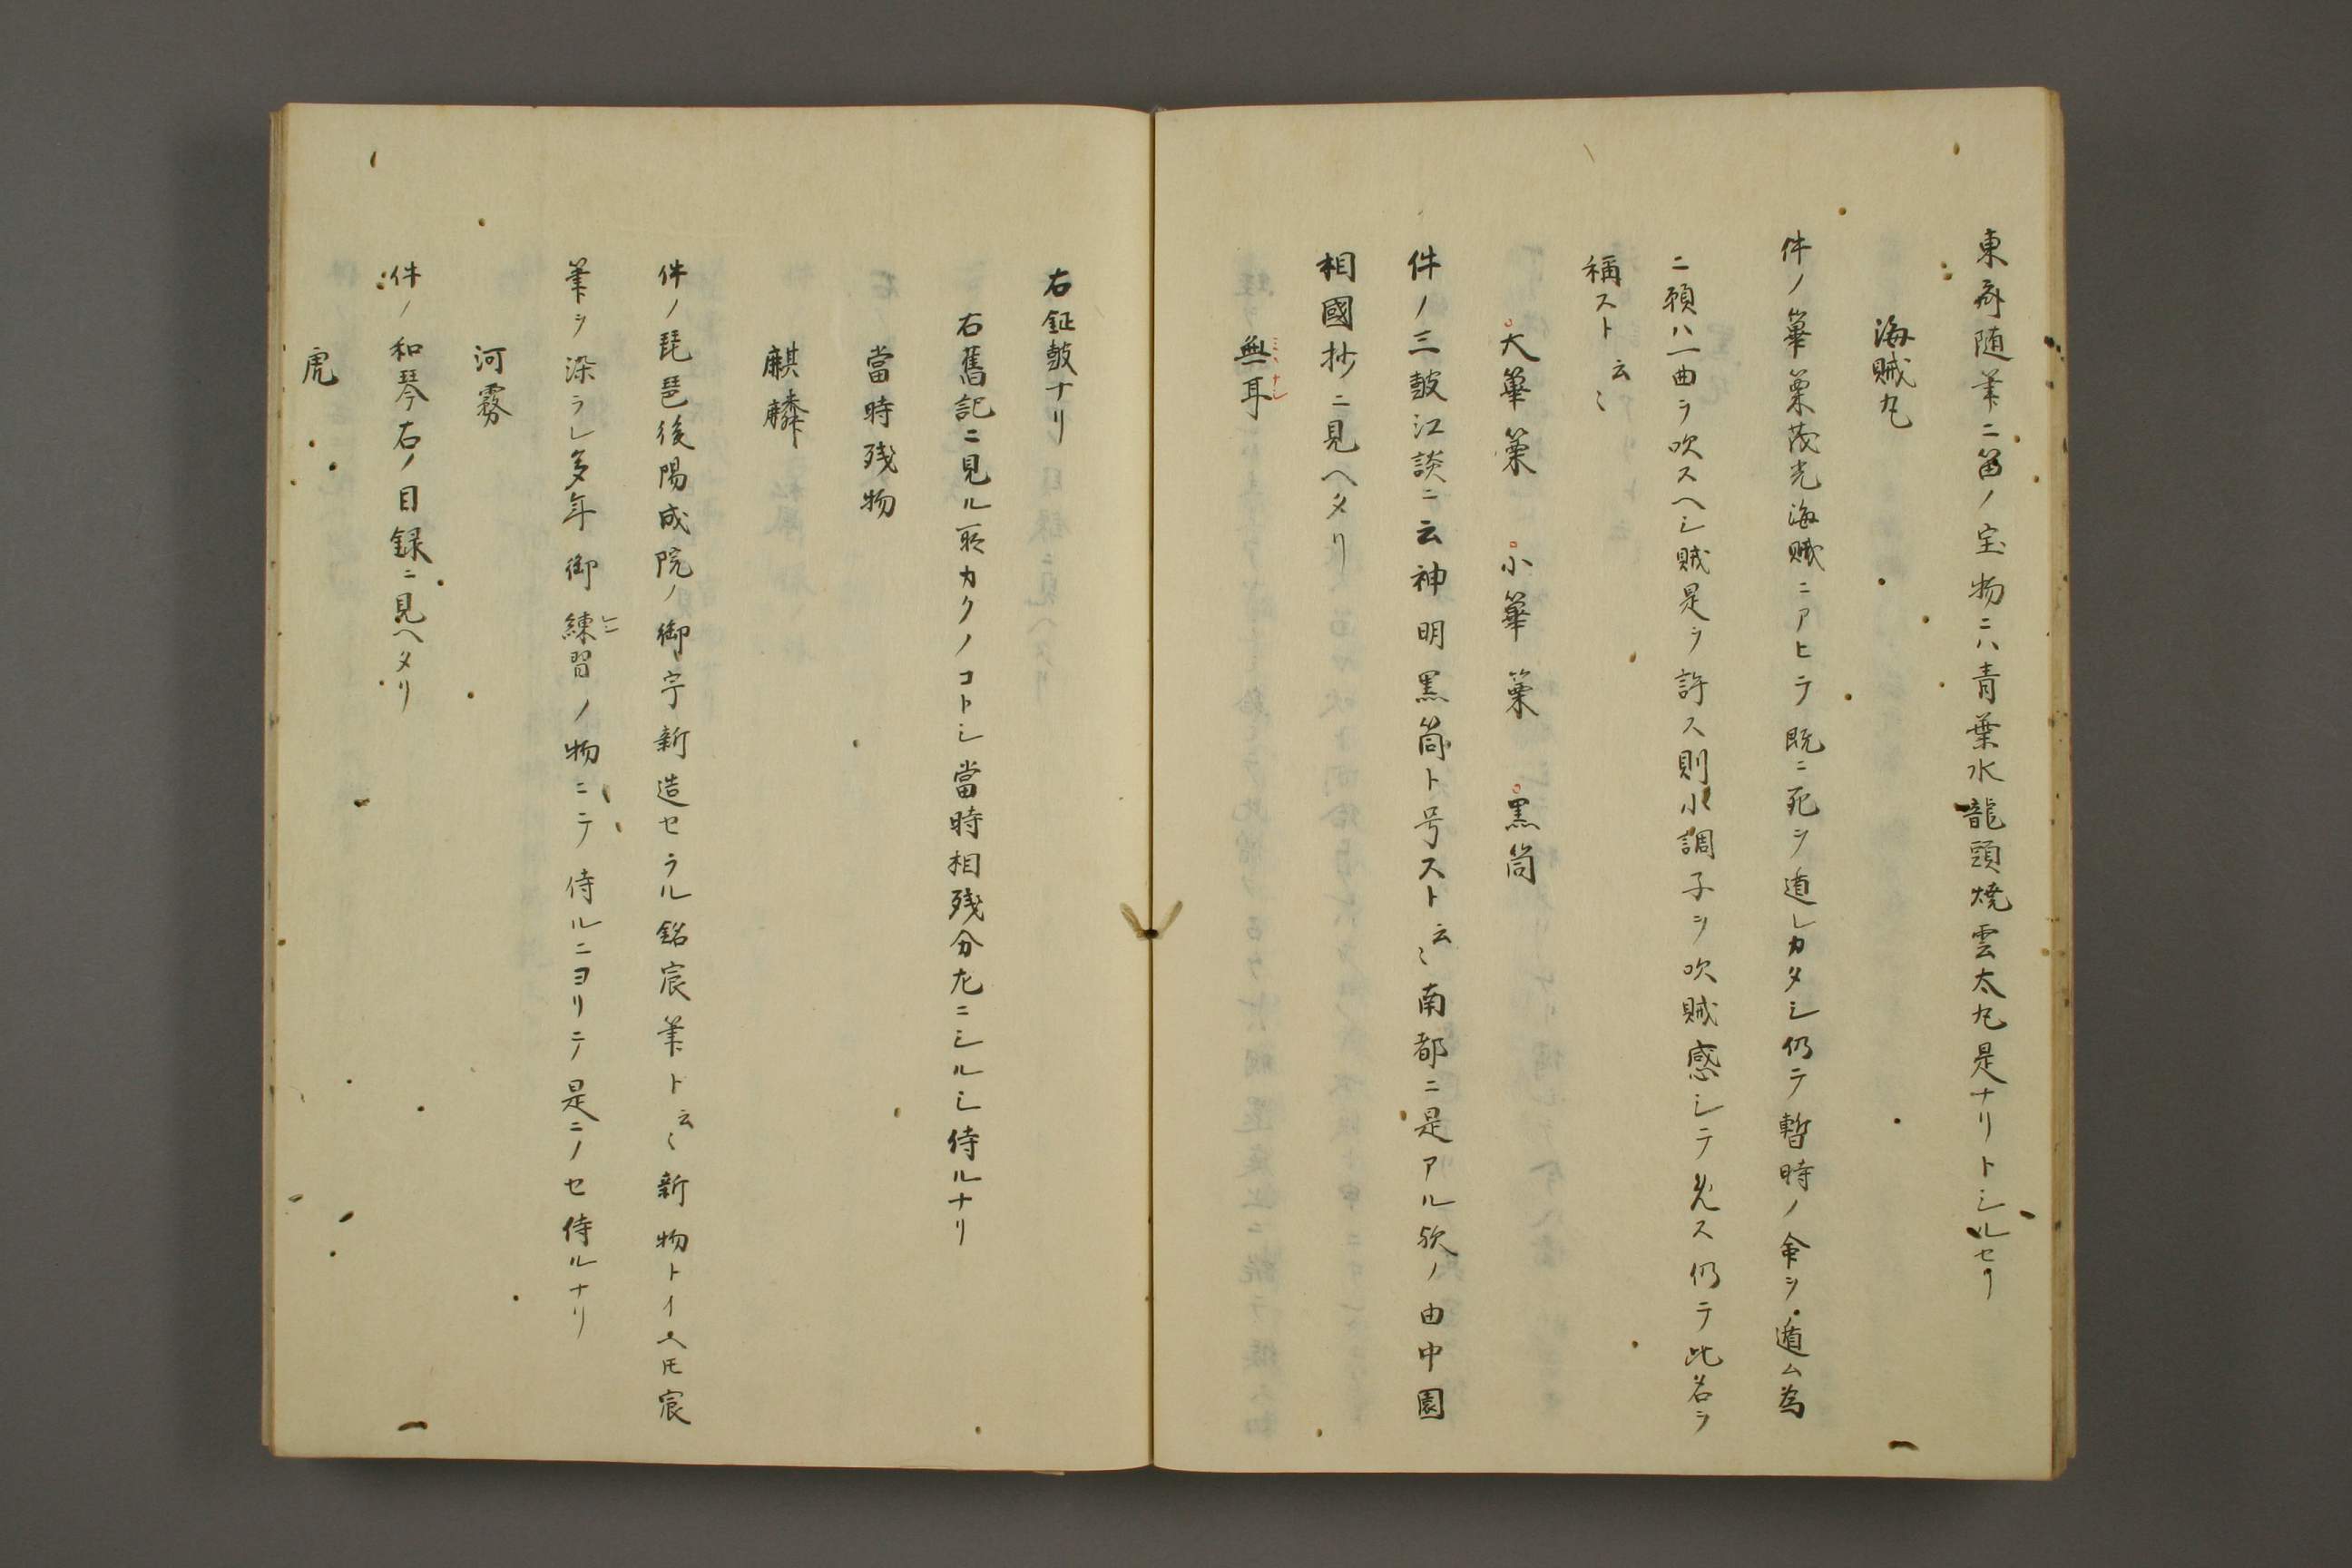 東斎随筆ニ笛ノ宝物ニハ青葉水龍頭焼雲太丸是ナリトシルセリ
海賊丸
件ノ篳篥茂光海賊ニアヒテ既ニ死ヲ遁レカタシ仍テ暫時ノ命ヲ遁ム為
ニ願ハ一曲ヲ吹スヘシ賊是ヲ許ス則小調子ヲ吹賊感シテ免ス仍テ此名ヲ
稱スト云〻
大篳篥 小篳篥 黒筒
件ノ三皷江談ニ云神明黒筒ト号スト云〻南都ニ是アル欤ノ由中園
相國抄ニ見ヘタリ
無耳ミヽナシ
右鉦皷ナリ
右舊記ニ見ル所カクノコトシ當時相残分左ニシルシ侍ルナリ
當時残物
麒麟
件ノ琵琶後陽成院ノ御宇新造セラル銘宸筆ト云〻新物トイヘ𪜈宸
筆ヲ染ラレ多年御練習ノ物ニテ侍ルニヨリテ是ニノセ侍ルナリ
河霧
件ノ和琴右ノ目録ニ見ヘタリ
虎